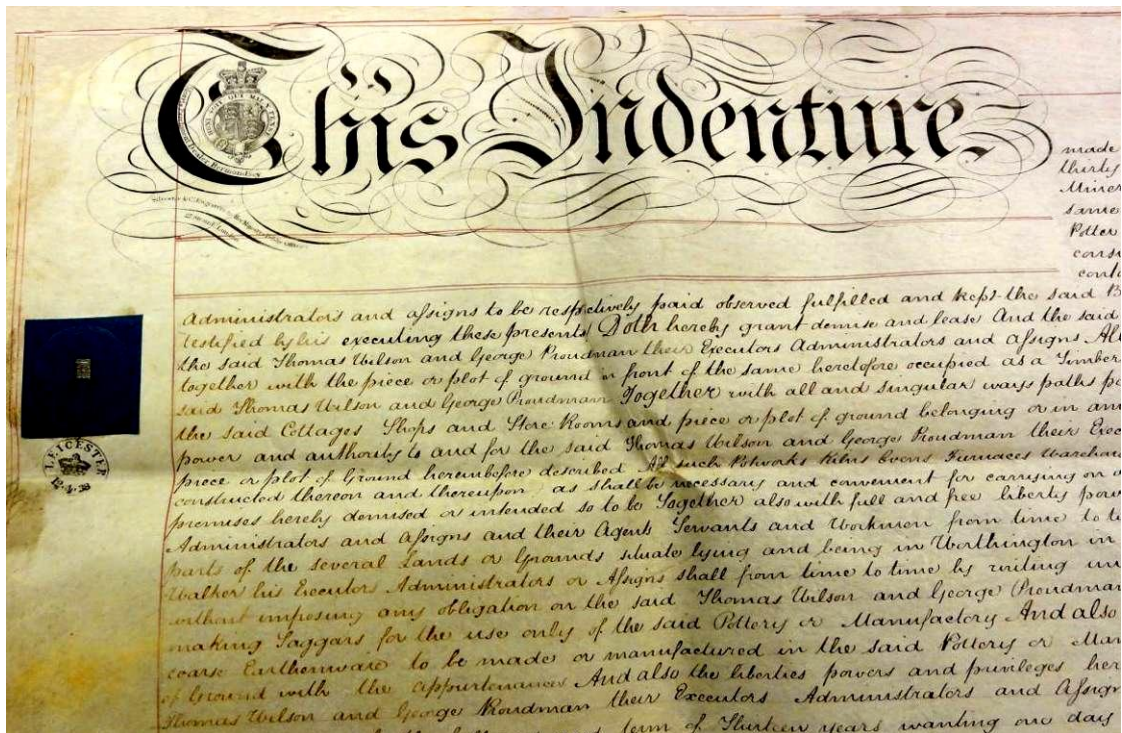 This Indenture
made
thirty
Miner
same
Potter
consi
conta
LEICESTER
Administrators and assigns to be respectively paid observed fulfilled and kept the said B
testified by his executing these presents Doth hereby grant demise and lease And the said
the said Thomas Wilson and George Proudman their Executors Administrators and assigns All
together with the piece or plot of ground in front of the same heretofore occupied as a Timber
said Thomas Wilson and George Proudman Together with all and singular ways paths pa
the said Cottages Shops and Store Rooms and piece or plot of ground belonging or in any
power and authority to and for the said Thomas Wilson and George Proudman their Exec
piece or plot of Ground hereinbefore described All such Potworks Kilns Ovens Furnaces Warehou
constructed thereon and thereupon as shall be necessary and convenient for carrying on
premises hereby demised or intended so to be Together also with full and free liberty pow
Administrators and Assigns and their Agents Servants and Workmen from time to t
parts of the several Lands or Grounds situate lying and being in Worthington in
Walker his Executors Administrators or Assigns shall from time to time by writing un
without imposing any obligation on the said Thomas Wilson and George Proudman
making Saggars for the use only of the said Pottery or Manufactory And also
coarse Earthenware to be made or manufactured in the said Pottery or Man
of Ground with the appurtenances And also the liberties powers and privileges her
Thomas Wilson and George Proudman their Executors Administrators and Assign
term of Thirteen years wanting one day